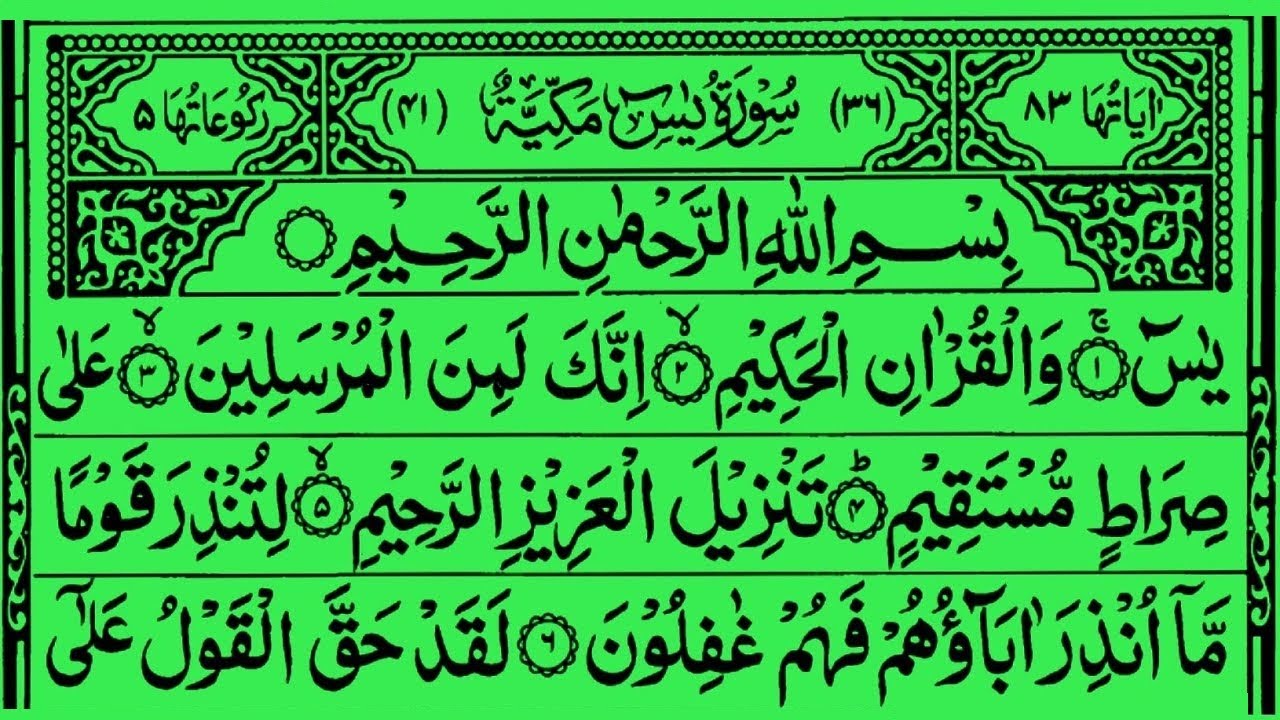 اٰيَاتُهَا ٨٣ (٣٦) سُوْرَةُ يٰسٓ مَكِّيَّةٌ (٤١) رُكُوْعَاتُهَا ٥
بِسْمِ اللّٰهِ الرَّحْمٰنِ الرَّحِيْمِ
يٰسٓ ۚ ﴿١﴾ وَالْقُرْاٰنِ الْحَكِيْمِ ۙ ﴿٢﴾ اِنَّكَ لَمِنَ الْمُرْسَلِيْنَ ۙ ﴿٣﴾ عَلٰى
صِرَاطٍ مُّسْتَقِيْمٍ ؕ ﴿۴﴾ تَنْزِيْلَ الْعَزِيْزِ الرَّحِيْمِ ۙ ﴿۵﴾ لِتُنْذِرَ قَوْمًا
مَّآ اُنْذِرَ اٰبَآؤُهُمْ فَهُمْ غٰفِلُوْنَ ﴿٦﴾ لَقَدْ حَقَّ الْقَوْلُ عَلٰٓى